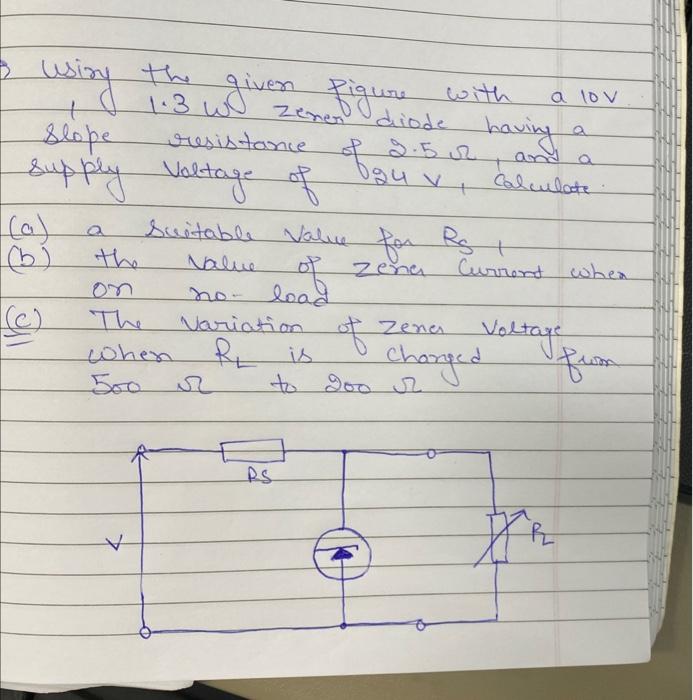 Using the given figure with a 10V
, 1.3 W zener diode having a
slope resistance of 2.5 Ω, and a
supply voltage of 24 V, calculate.
(a) a suitable value for RS,
(b) the value of zener current when
on no-load
(c) The variation of zener voltage
when RL is changed from
500 Ω to 200 Ω
RS
V
RL